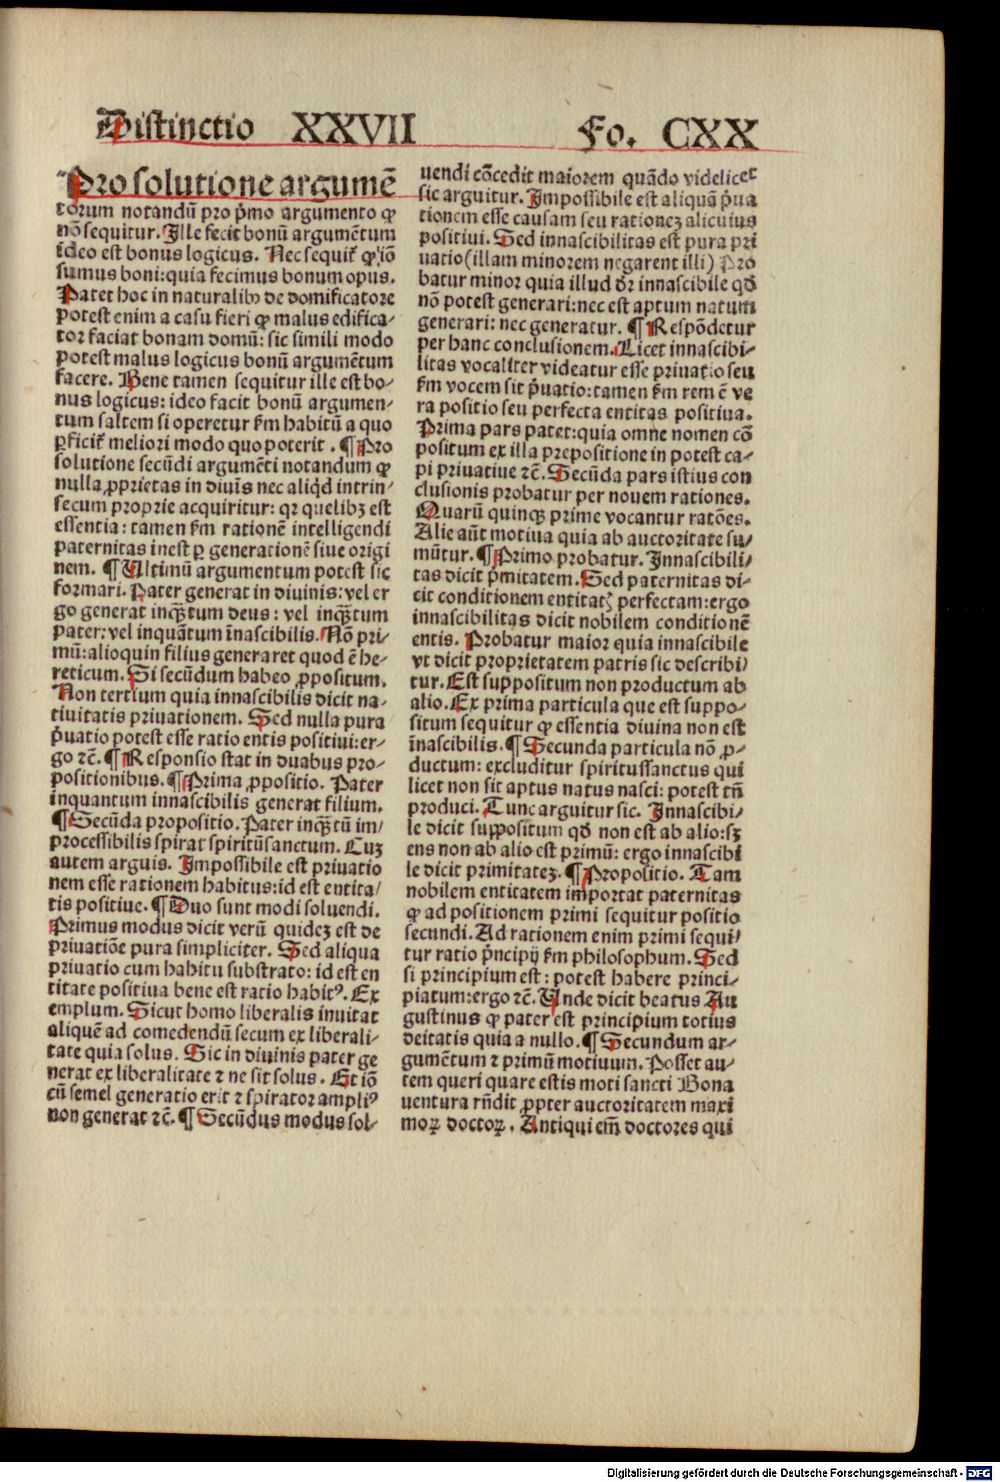 Distinctio XXVII
Fo. CXX
Pro solutione argumē
torum notandū pro pͥmo argumento ꝙ
nō sequitur. Ille fecit bonū argumētum
ideo est bonus logicus. Nec sequit᷑ ꝙ iō
sumus boni: quia fecimus bonum opus.
Patet hoc in naturalibꝰ de domificatore
potest enim a casu fieri ꝙ malus edifica⸗
tor faciat bonam domū: sic simili modo
potest malus logicus bonū argumētum
facere. Bene tamen sequitur ille est bo⸗
nus logicus: ideo facit bonū argumen⸗
tum saltem si operetur ẜm habitū a quo
ꝑficit᷑ meliori modo quo poterit. ¶ Pro
solutione secūdi argumēti notandum ꝙ
nulla ꝓprietas in diuīs nec aliqͥd intrin⸗
secum proprie acquiritur: qꝛ quelibꝫ est
essentia: tamen ẜm rationē intelligendi
paternitas inest ꝑ generationē siue origi
nem. ¶ Ultimū argumentum potest sic
formari. Pater generat in diuinis: vel er
go generat inqꝫtum deus: vel inqꝫtum
pater: vel inquātum īnascibilis. Nō pri⸗
mū: alioquin filius generaret quod ē he⸗
reticum. Si secūdum habeo ꝓpositum.
Non tertium quia innascibilis dicit na⸗
tiuitatis priuationem. Sed nulla pura
pͥuatio potest esse ratio entis positiui: er⸗
go ⁊c̄. ¶ Responsio stat in duabus pro⸗
positionibus. ¶ Prima ꝓpositio. Pater
inquantum innascibilis generat filium.
¶ Secūda propositio. Pater inqꝫtū im⸗
processibilis spirat spiritūsanctum. Cuꝫ
autem arguis. Impossibile est priuatio
nem esse rationem habitus: id est entita⸗
tis positiue. ¶ Duo sunt modi soluendi.
Primus modus dicit verū quideꝫ est de
priuatiōe pura simpliciter. Sed aliqua
priuatio cum habitu substrato: id est en
titate positiua bene est ratio habitꝰ. Ex
emplum. Sicut homo liberalis inuitat
aliquē ad comedendū secum ex liberali⸗
tate quia solus. Sic in diuinis pater ge
nerat ex liberalitate ⁊ ne sit solus. Et iō
cū semel generatio erit ⁊ spirator ampliꝰ
non generat ⁊c̄. ¶ Secūdus modus sol⸗
uendi cōcedit maiorem quādo videlicet
sic arguitur. Impossibile est aliquā pͥua
tionem esse causam seu rationeꝫ alicuius
positiui. Sed innascibilitas est pura pri
uatio (illam minorem negarent illi) Pro
batur minor quia illud dr̄ innascibile qd̄
nō potest generari: nec est aptum natum
generari: nec generatur. ¶ Respōdetur
per hanc conclusionem. Licet innascibi⸗
litas vocaliter videatur esse priuatio seu
ẜm vocem sit pͥuatio: tamen ẜm rem ē ve
ra positio seu perfecta entitas positiua.
Prima pars patet: quia omne nomen cō
positum ex illa prepositione in potest ca⸗
pi priuatiue ⁊c̄. Secūda pars istius con
clusionis probatur per nouem rationes.
Quarū quinqꝫ prime vocantur ratōes.
Alie aūt motiua quia ab auctoritate su⸗
mūtur. ¶ Primo probatur. Innascibili⸗
tas dicit pͥmitatem. Sed paternitas di⸗
cit conditionem entitatꝭ perfectam: ergo
innascibilitas dicit nobilem conditionē
entis. Probatur maior quia innascibile
vt dicit proprietatem patris sic describi⸗
tur. Est suppositum non productum ab
alio. Ex prima particula que est suppo⸗
situm sequitur ꝙ essentia diuina non est
īnascibilis. ¶ Secunda particula nō ꝓ⸗
ductum: excluditur spiritussanctus qui
licet non sit aptus natus nasci: potest tn̄
produci. Tunc arguitur sic. Innascibi⸗
le dicit suppositum qd̄ non est ab alio: sꝫ
ens non ab alio est primū: ergo innascibi
le dicit primitateꝫ. ¶ Propositio. Tam
nobilem entitatem importat paternitas
ꝙ ad positionem primi sequitur positio
secundi. Ad rationem enim primi sequi⸗
tur ratio pͥncipij ẜm philosophum. Sed
si principium est: potest habere princi⸗
piatum: ergo ⁊c̄. Unde dicit beatus Au
gustinus ꝙ pater est principium totius
deitatis quia a nullo. ¶ Secundum ar⸗
gumētum ⁊ primū motiuum. Posset au⸗
tem queri quare estis moti sancti Bona
uentura rn̄dit ꝓpter auctoritatem maxi
moꝝ doctoꝝ. Antiqui em̄ doctores qui
Digitalisierung gefördert durch die Deutsche Forschungsgemeinschaft - DFG